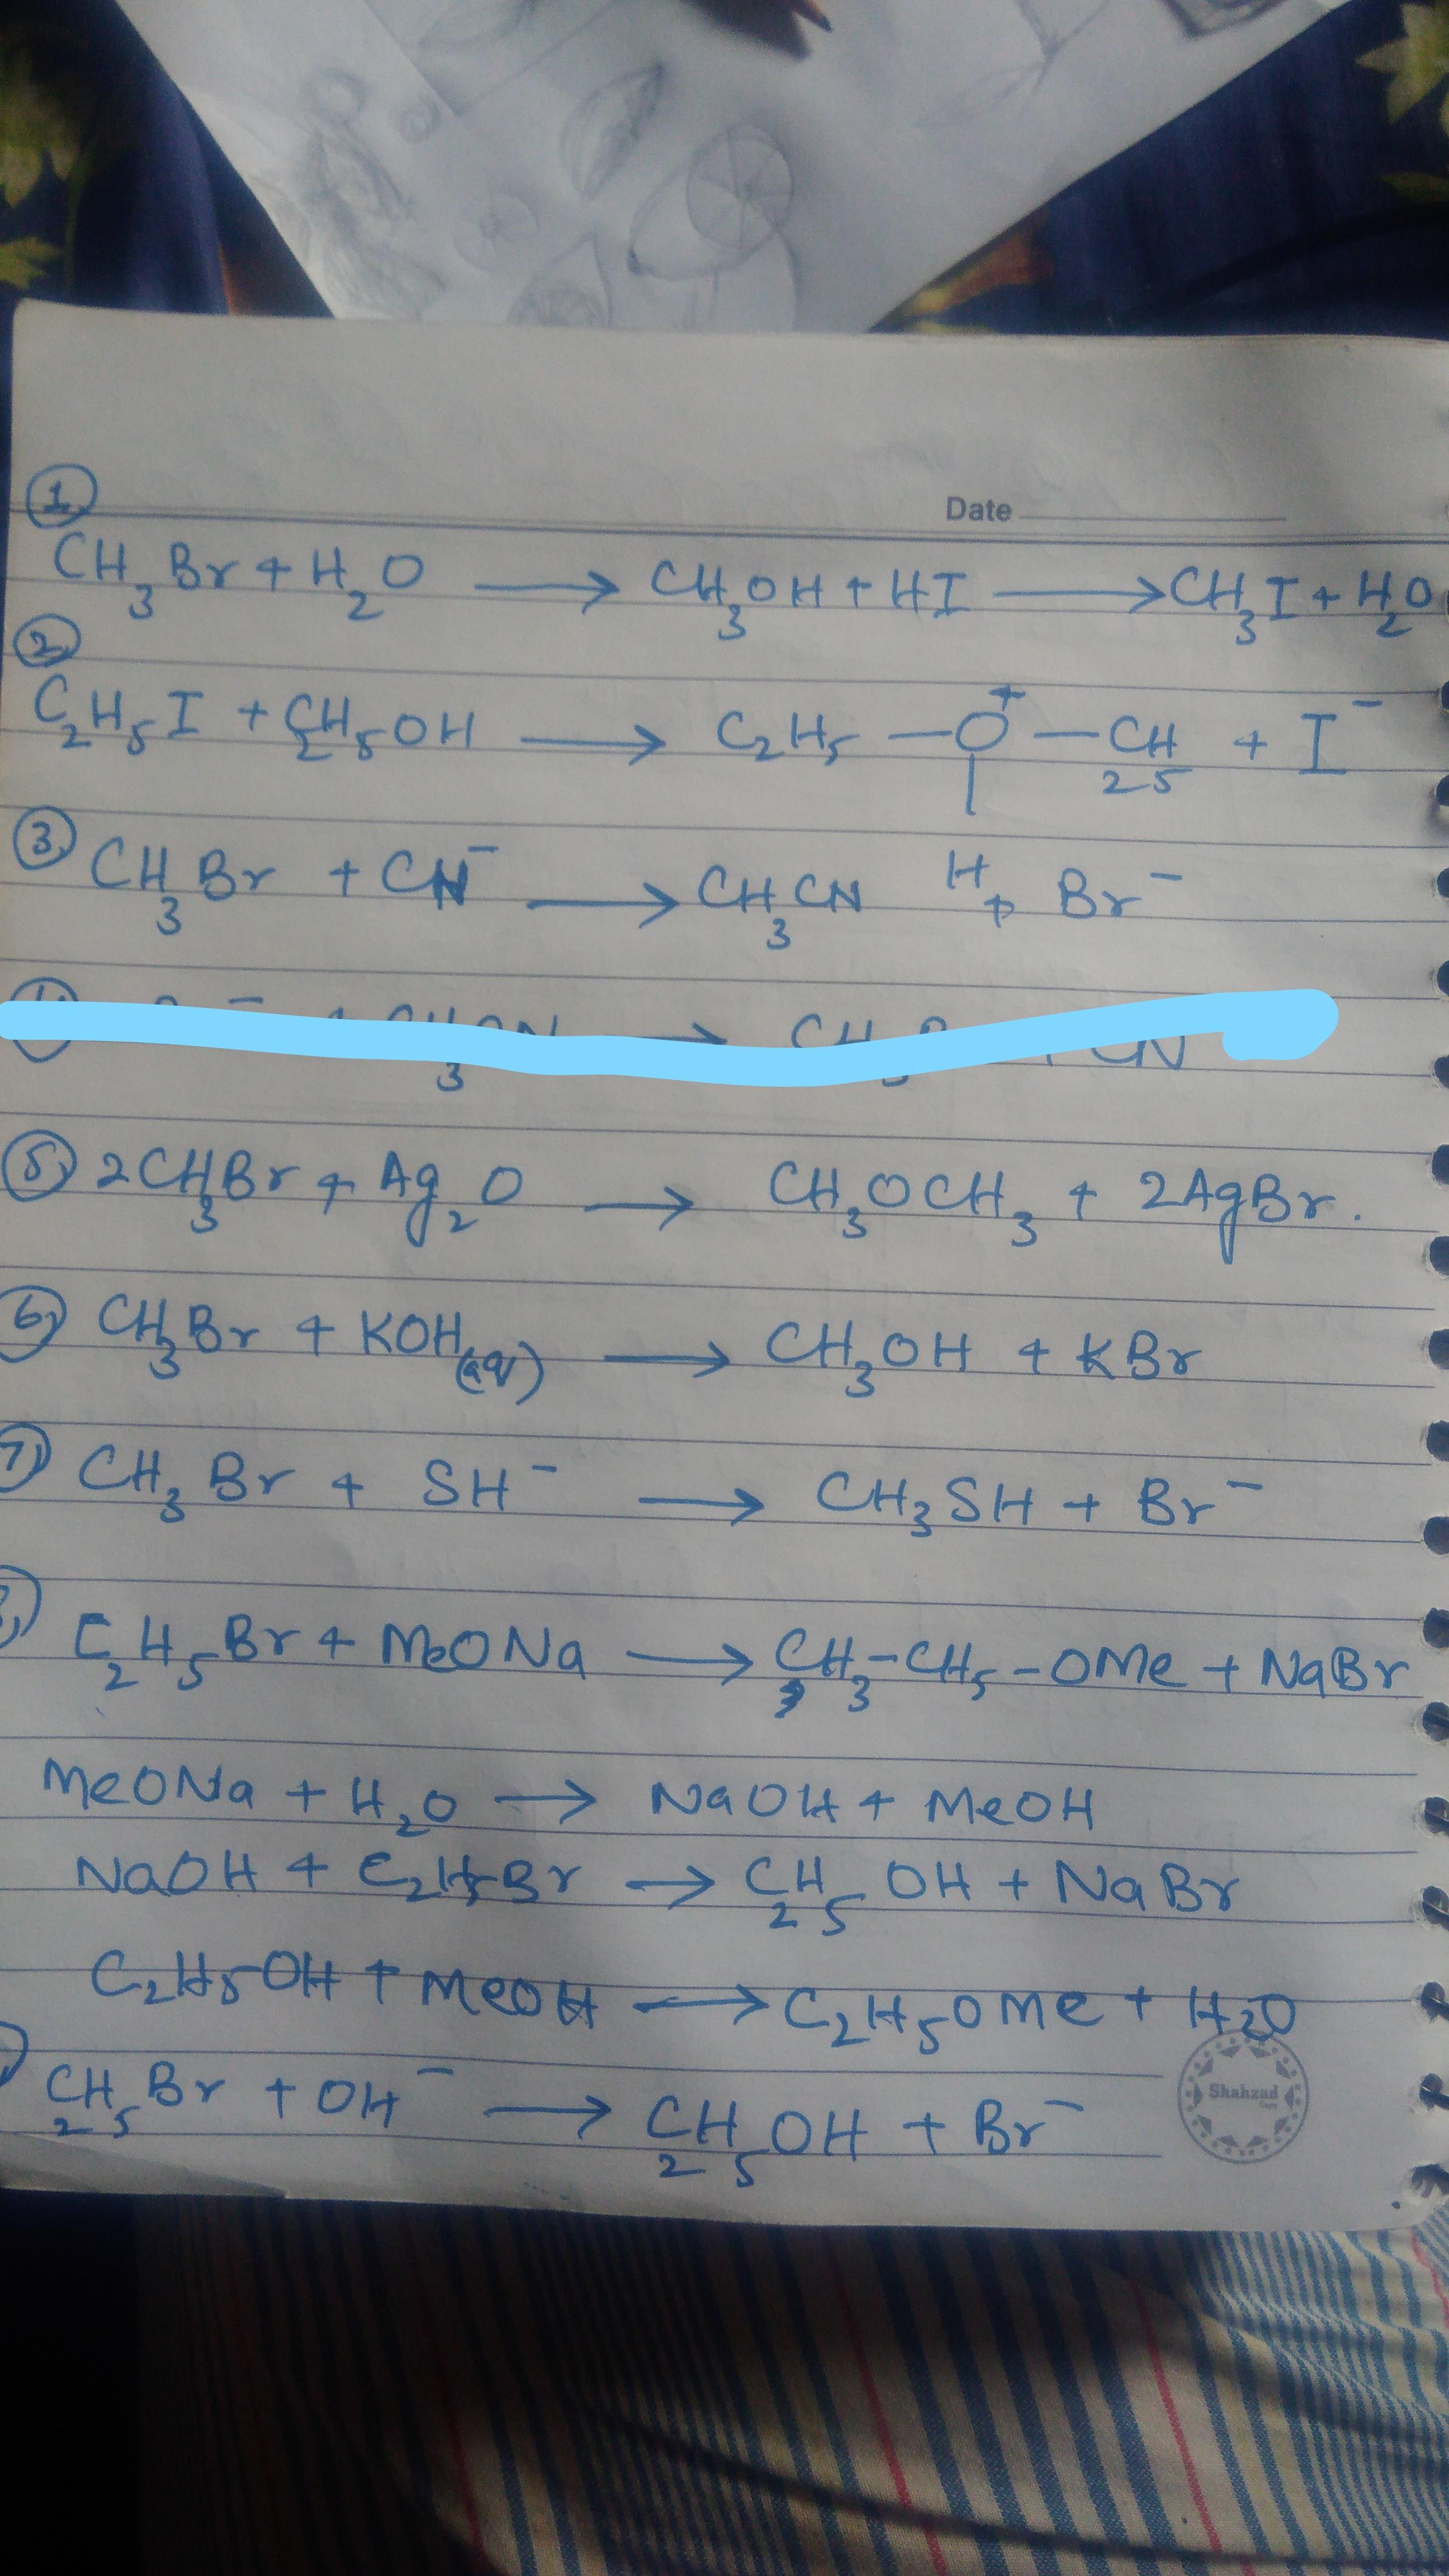 1.
Date
CH₃Br + H₂O → CH₃OH + HI → CH₃I + H₂O
2.
C₂H₅I + C₂H₅OH → C₂H₅ — O⁺ — C₂H₅ + I⁻
|
3. CH₃Br + CN⁻ → CH₃CN H + Br⁻
5) 2CH₃Br + Ag₂O → CH₃OCH₃ + 2AgBr.
6) CH₃Br + KOH(aq) → CH₃OH + KBr
7) CH₃Br + SH⁻ → CH₃SH + Br⁻
C₂H₅Br + MeONa → CH₃-CH₅-OMe + NaBr
MeONa + H₂O → NaOH + MeOH
NaOH + C₂H₅Br → C₂H₅OH + NaBr
C₂H₅OH + MeOH → C₂H₅OMe + H₂O
C₂H₅Br + OH⁻ → C₂H₅OH + Br⁻
Shahzad